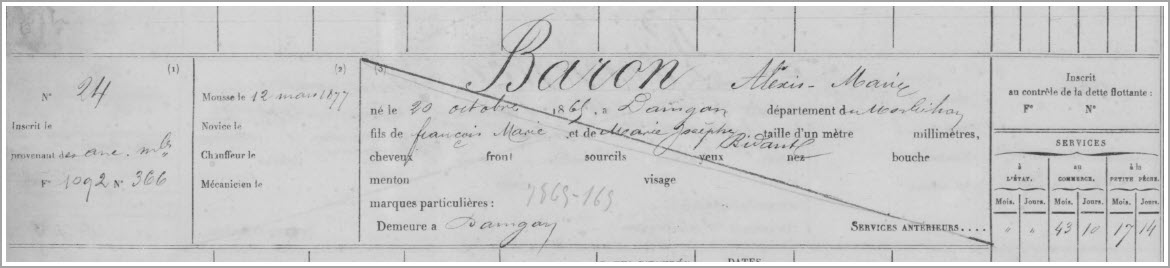 (1)
N° 24
Inscrit le
provenant des anc. mles
F° 1092 N° 366
(2)
Mousse le 12 mars 1877
Novice le
Chauffeur le
Mécanicien le
(3)
Baron Alexis-Marie
né le 20 octobre 1865, à Damgan département du Morbihan
fils de françois Marie et de Marie Josèphe taille d'un mètre millimètres,
cheveux front sourcils yeux nez bouche
menton visage
marques particulières : 1865-165
Demeure à Damgan SERVICES ANTÉRIEURS....
Inscrit
au contrôle de la dette flottante :
F° N°
SERVICES
à L'ÉTAT. au COMMERCE. à la PETITE PÊCHE.
Mois. Jours. Mois. Jours. Mois. Jours.
" " 43 10 17 14
DATES